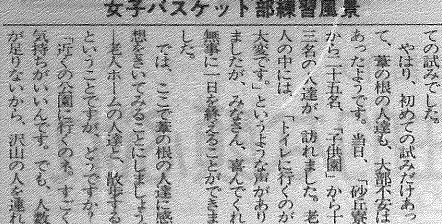 女子バスケット部練習風景
ての試みでした。
やはり、初めての試みだけあっ
て、葦の根の人達も、大部不安は
あったようです。当日、「砂丘寮」
から二十五名、「子供園」から十
三名の人達が、訪れました。老
人の中には、「トイレに行くのが
大変です。」というような声があり
ましたが、みなさん、喜んでくれ
無事に一日を終えることができま
した。
では、ここで葦の根の人達に感
想をきいてみることにしましょう
―老人ホームの人達と、散歩する
ということですが、どうですか?
「近くの公園に行くのも、すごく
気持ちがいいんです。でも、人数
が足りないから、沢山の人を連れ